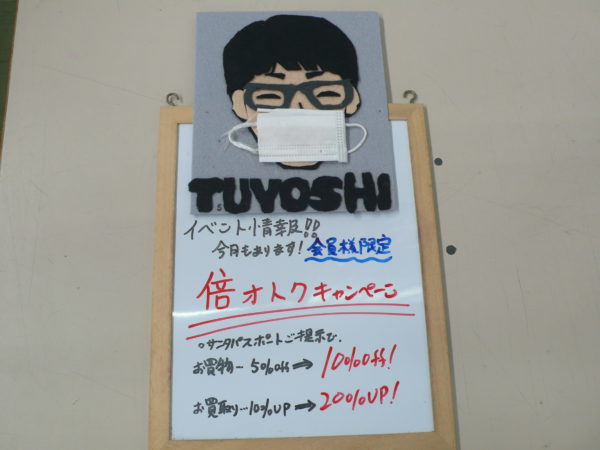 TUYOSHI
イベント情報!!
今月もあります! 会員様限定
倍オトクキャンペーン
○サンタパスポートご提示で、
お買物…5%off➡10%off!
お買取り…10%UP➡20%UP!